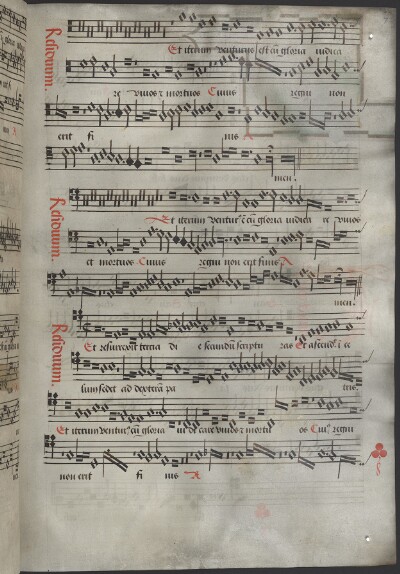 Residuum.
Et iterum venturus est cū gloria iudica
re vivos ⁊ mortuos Cuius regni non
erit fi nis A
men.
Residuum.
Et iterum ventur⁹ ē cū gloria iudica re vivos
et mortuos Cuius regni non erit finis A
men.
Residuum.
Et resurrexit tercia di e secundū scriptu ras Et ascēdit ī ce
lum sedet ad dexterā pa tris.
Et iterum ventur⁹ cū gloria iudicare vivos ⁊ mortu os Cui⁹ regni
non erit fi nis A